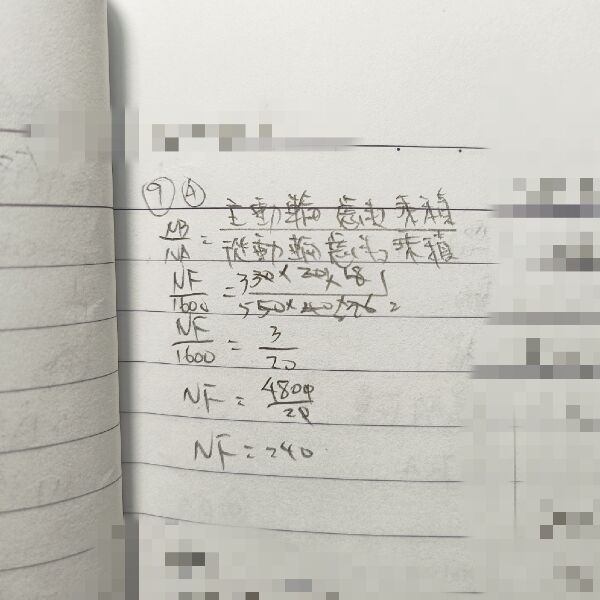 ⑨ Ⓐ
NB/NA = 主動輪齒數乘積/從動輪齒數乘積
NF/1600 = 3 30×20×18 1/5 50×40×36 2
NF/1600 = 3/20
NF = 4800/20
NF = 240